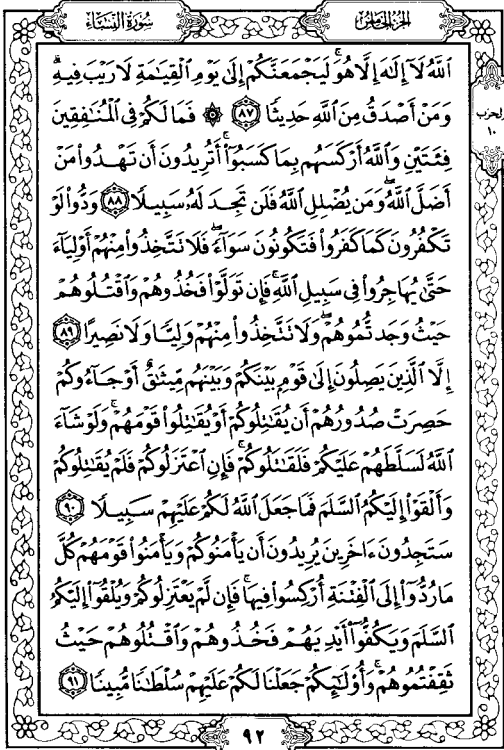 سُورَةُ النِّسَاءِ
الجُزْءُ الخَامِسُ
اللَّهُ لَا إِلَٰهَ إِلَّا هُوَ ۚ لَيَجْمَعَنَّكُمْ إِلَىٰ يَوْمِ الْقِيَامَةِ لَا رَيْبَ فِيهِ ۗ
وَمَنْ أَصْدَقُ مِنَ اللَّهِ حَدِيثًا ٨٧ ۞ فَمَا لَكُمْ فِي الْمُنَافِقِينَ
فِئَتَيْنِ وَاللَّهُ أَرْكَسَهُم بِمَا كَسَبُوا ۚ أَتُرِيدُونَ أَن تَهْدُوا مَنْ
أَضَلَّ اللَّهُ ۖ وَمَن يُضْلِلِ اللَّهُ فَلَن تَجِدَ لَهُ سَبِيلًا ٨٨ وَدُّوا لَوْ
تَكْفُرُونَ كَمَا كَفَرُوا فَتَكُونُونَ سَوَاءً ۖ فَلَا تَتَّخِذُوا مِنْهُمْ أَوْلِيَاءَ
حَتَّىٰ يُهَاجِرُوا فِي سَبِيلِ اللَّهِ ۚ فَإِن تَوَلَّوْا فَخُذُوهُمْ وَاقْتُلُوهُمْ
حَيْثُ وَجَدتُّمُوهُمْ ۖ وَلَا تَتَّخِذُوا مِنْهُمْ وَلِيًّا وَلَا نَصِيرًا ٨٩
إِلَّا الَّذِينَ يَصِلُونَ إِلَىٰ قَوْمٍ بَيْنَكُمْ وَبَيْنَهُم مِّيثَاقٌ أَوْ جَاءُوكُمْ
حَصِرَتْ صُدُورُهُمْ أَن يُقَاتِلُوكُمْ أَوْ يُقَاتِلُوا قَوْمَهُمْ ۚ وَلَوْ شَاءَ
اللَّهُ لَسَلَّطَهُمْ عَلَيْكُمْ فَلَقَاتَلُوكُمْ ۚ فَإِنِ اعْتَزَلُوكُمْ فَلَمْ يُقَاتِلُوكُمْ
وَأَلْقَوْا إِلَيْكُمُ السَّلَمَ فَمَا جَعَلَ اللَّهُ لَكُمْ عَلَيْهِمْ سَبِيلًا ٩٠
سَتَجِدُونَ آخَرِينَ يُرِيدُونَ أَن يَأْمَنُوكُمْ وَيَأْمَنُوا قَوْمَهُمْ كُلَّ
مَا رُدُّوا إِلَى الْفِتْنَةِ أُرْكِسُوا فِيهَا ۚ فَإِن لَّمْ يَعْتَزِلُوكُمْ وَيُلْقُوا إِلَيْكُمُ
السَّلَمَ وَيَكُفُّوا أَيْدِيَهُمْ فَخُذُوهُمْ وَاقْتُلُوهُمْ حَيْثُ
ثَقِفْتُمُوهُمْ ۚ وَأُولَٰئِكُمْ جَعَلْنَا لَكُمْ عَلَيْهِمْ سُلْطَانًا مُّبِينًا ٩١
لحزب
١٠
٩٢